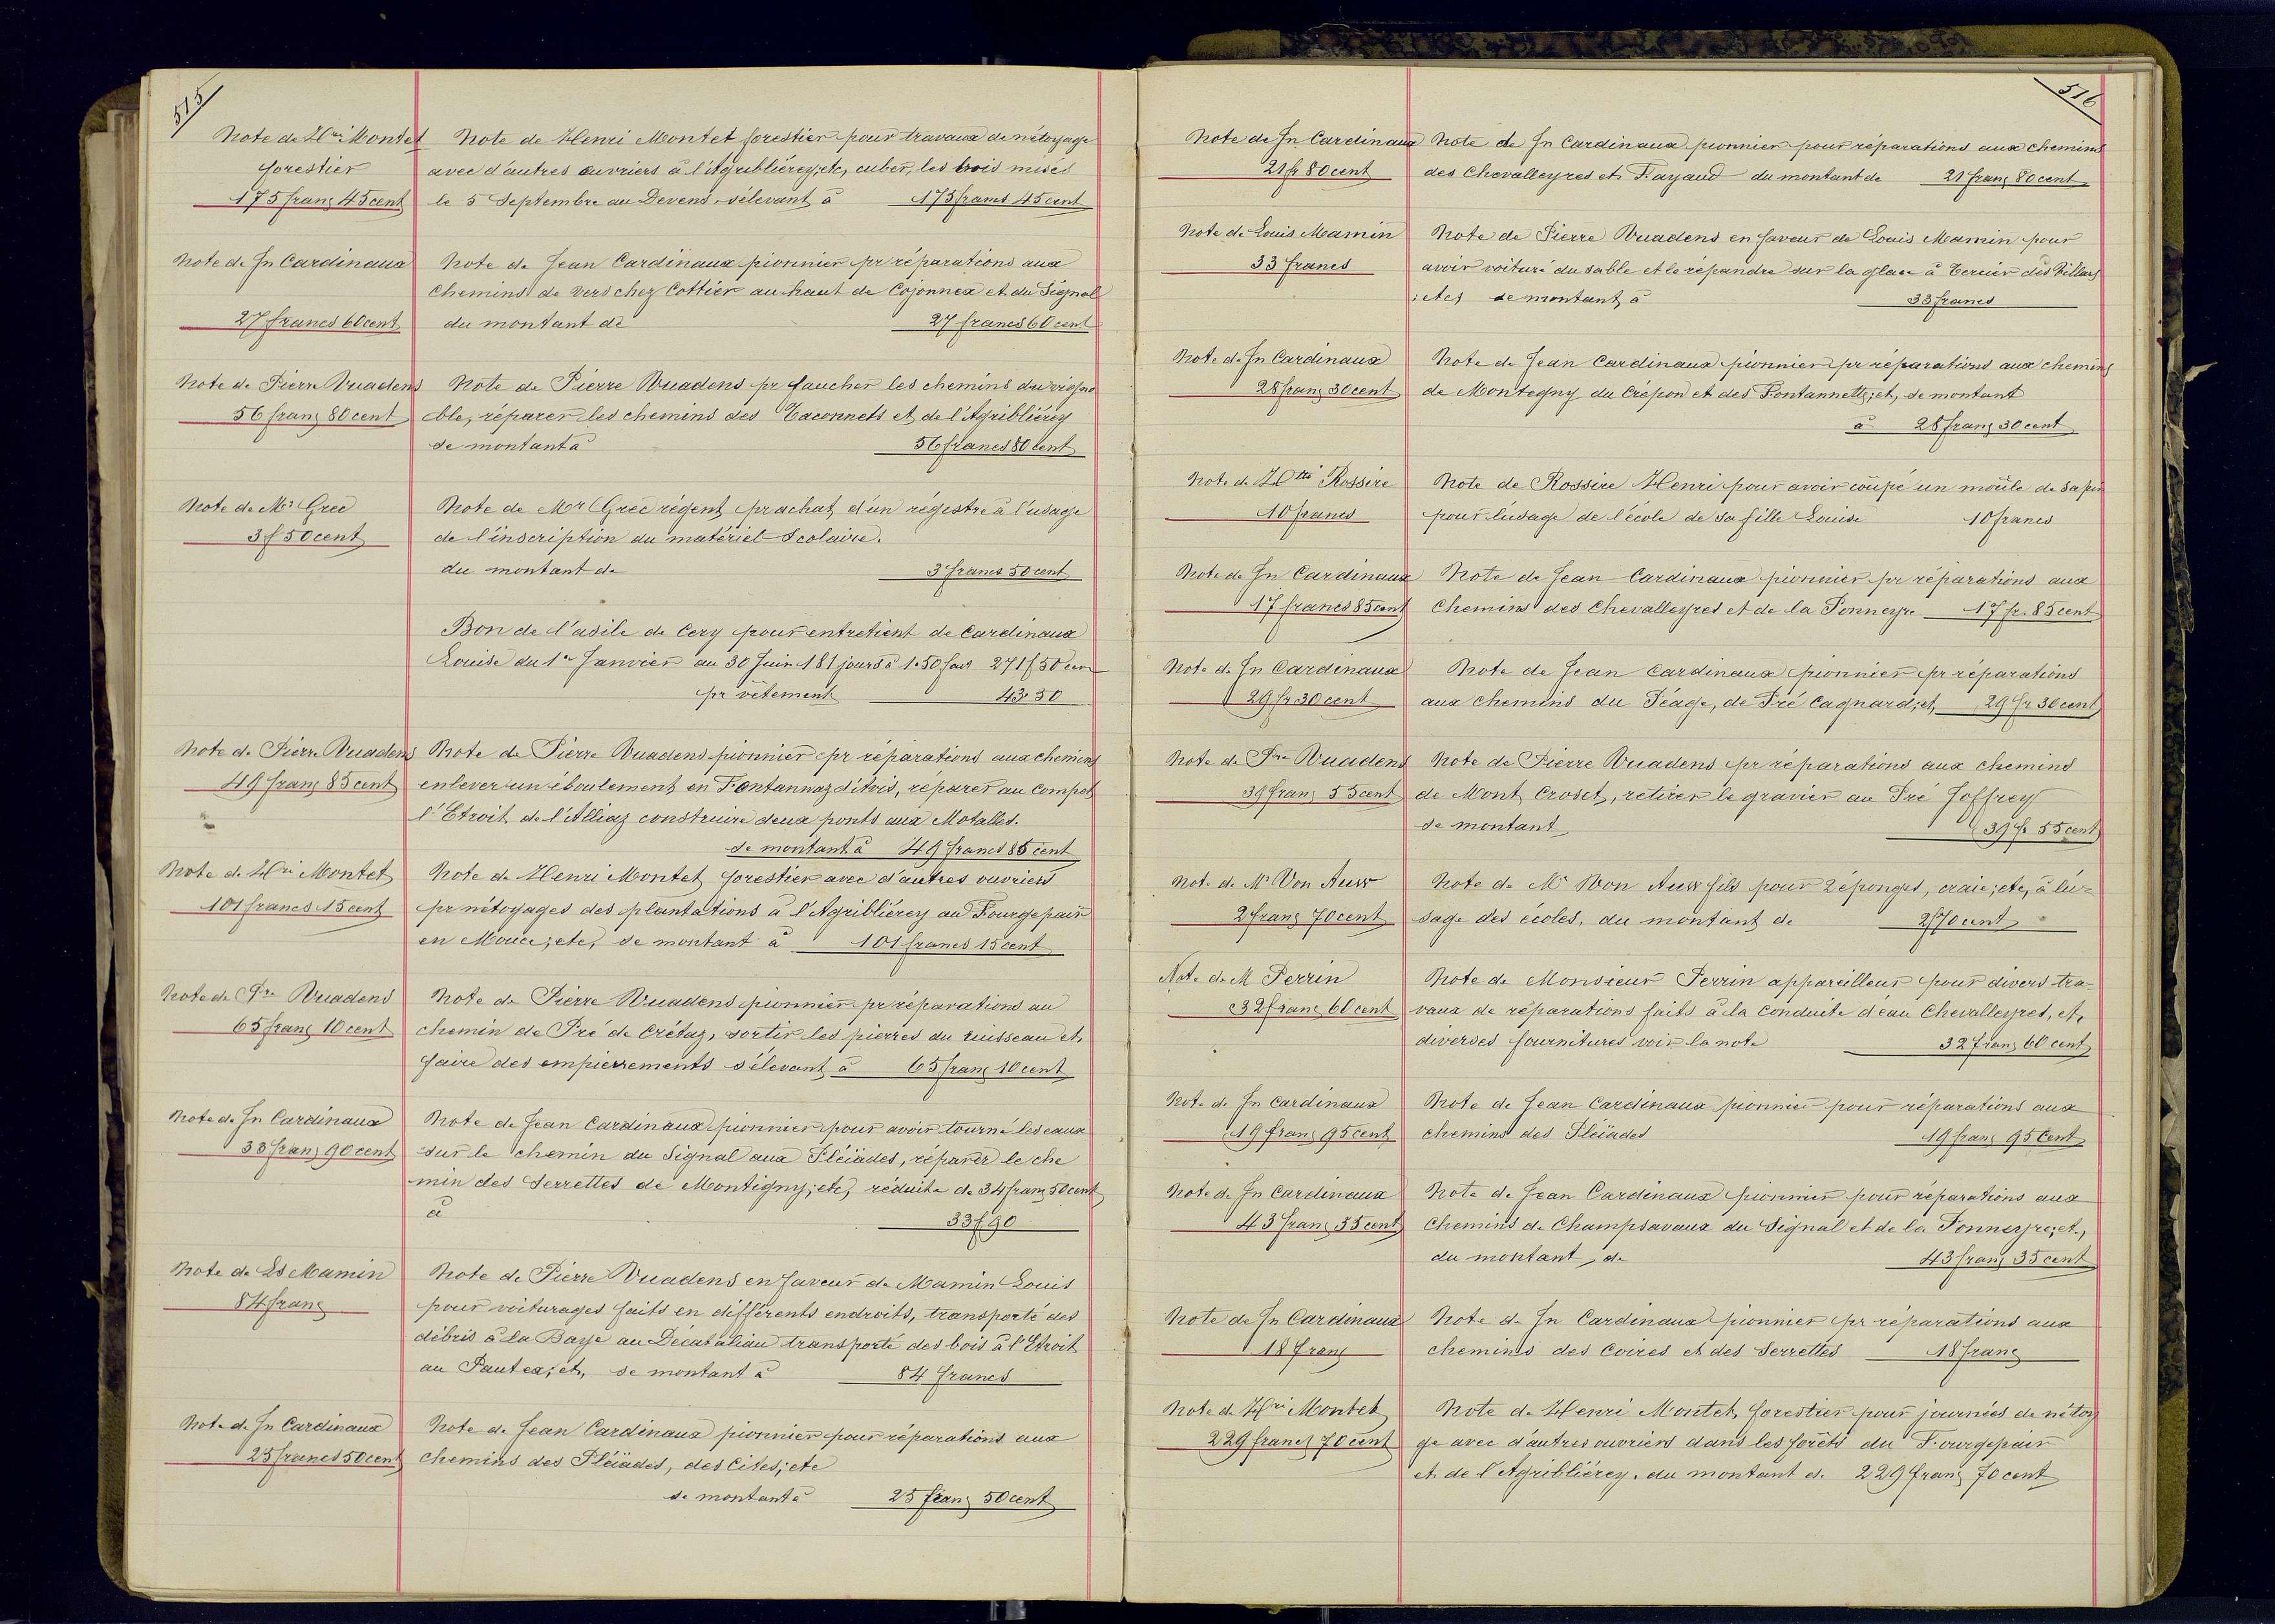 515
Note de Hri Montet
forestier
175 franc 45 cent
Note de Henri Montet forestier pour travaux de nétoyage
avec d'autres ouvriers à l'Agribliérey, etc, cuber, les bois misés
le 5 Septembre au Devens, sélevant à 175 francs 45 cent
Note de Jn Cardinaux
27 francs 60 cent
Note de Jean Cardinaux pionnier pr réparations aux
Chemins de vers chez Cottier au haut de Cojonnex et du Signal
du montant de 27 francs 60 cent
Note de Pierre Vuadens
56 franc 80 cent
Note de Pierre Vuadens pr faucher les chemins du vigno
ble, réparer les chemins des Taconnets et de l'Agribliérey
se montant à 56 francs 80 cent
Note de Mr Grec
3f 50 cent
Note de Mr Grec régent pr achat d'un régistre à l'usage
de l'inscription du matériel Scolaire.
du montant de 3 francs 50 cent
Bon de l'asile de Cery pour entretient de Cardinaux
Louise du 1er Janvier au 30 Juin 181 jours à 1.50 271f 50 cen
pr vêtement 43.50
Note de Pierre Vuadens
49 franc 85 cent
Note de Pierre Vuadens pionnier pr réparations aux chemins
enlever un éboulement en Fontannaz d'itvis, réparer au Compet
l'Etroit de l'Alliaz construire deux ponts aux Motalles.
se montant à 49 francs 85 cent
Note de Hri Montet
101 francs 15 cent
Note de Henri Montet forestier avec d'autres ouvriers
pr nétoyages des plantations à l'Agribliérey au Fourgepair
en Mouce, etc, se montant à 101 francs 15 cent
Note de Pre Vuadens
65 franc 10 cent
Note de Pierre Vuadens pionnier pr réparations au
chemin de Pré de Crétaz, sortir les pierres du ruisseau et
faire des empierrements s'élevant à 65 franc 10 cent
Note de Jn Cardinaux
33 franc 90 cent
Note de Jean Cardinaux pionnier pour avoir tourné les eaux
sur le chemin du Signal aux Pléïades, réparer le che
min des Serrettes de Montigny; etc, réduite de 34 franc 50 cent
à 33f 90
Note de Ls Mamin
84 franc
Note de Pierre Vuadens en faveur de Mamin Louis
pour voiturages faits en différents endroits, transporté des
débris à la Baye au Décataliau transporté des bois à l'Etroit
au Pautex; etc, se montant à 84 francs
Note de Jn Cardinaux
25 francs 50 cent
Note de Jean Cardinaux pionnier pour réparations aux
chemins des Pléïades, des Cites; etc
se montant à 25 franc 50 cent
516
Note de Jn Cardinaux
21 fr 80 cent
Note de Jn Cardinaux pionnier pour réparations aux chemins
des Chevalleyres et Fayaud du montant de 21 franc 80 cent
Note de Louis Mamin
33 francs
Note de Pierre Vuadens en faveur de Louis Mamin pour
avoir voituré du sable et le répandre sur la glace à Tercier des Villars
; etc; se montant à 33 francs
Note de Jn Cardinaux
28 franc 30 cent
Note de Jean Cardinaux pionnier pr réparations aux chemins
de Montegny du Crépon et des Fontannettes; etc, se montant
à 28 franc 30 cent
Note de Hri Rossire
10 francs
Note de Rossire Henri pour avoir coupé un moûle de Sapin
pour l'usage de l'école de sa fille Louise 10 francs
Note de Jn Cardinaux
17 francs 85 cent
Note de Jean Cardinaux pionnier pr réparations aux
Chemins des Chevalleyres et de la Ponneyre 17 fr. 85 cent
Note de Jn Cardinaux
29 fr 30 cent
Note de Jean Cardinaux pionnier pr réparations
aux Chemins du Péage, de Pré Cagnard; etc, 29 fr 30 cent
Note de Pre Vuadens
39 franc 55 cent
Note de Pierre Vuadens pr réparations aux chemins
de Mont Croset, retirer le gravier au Pré Joffrey
se montant 39 fr 55 cent
Note de Mr Von Auw
2 franc 70 cent
Note de Mr Von Auw fils pour 2 éponges, craie; etc, à l'u=
sage des écoles, du montant de 2f 70 cent
Note de M Perrin
32 franc 60 cent
Note de Monsieur Perrin appareilleur pour divers tra-
vaux de réparations faits à la Conduite d'eau Chevalleyres, et,
diverses fournitures voir la note 32 franc 60 cent
Note de Jn Cardinaux
19 franc 95 cent
Note de Jean Cardinaux pionnier pour réparations aux
chemins des Pleïades 19 franc 95 Cent
Note de Jn Cardinaux
43 franc 35 cent
Note de Jean Cardinaux pionnier pour réparations aux
Chemins de Champsavaux du Signal et de la Ponneyre; etc,
du montant, de 43 franc 35 cent
Note de Jn Cardinaux
18 franc
Note de Jn Cardinaux pionnier pr réparations aux
chemins des Coires et des Serrettes 18 franc
Note de Hri Montet
229 francs 70 cent
Note de Henri Montet, forestier pour journées de nétoy
ge avec d'autres ouvriers dans les forêts du Fourgepair
et de l'Agribliérey. du montant de 229 franc 70 cent